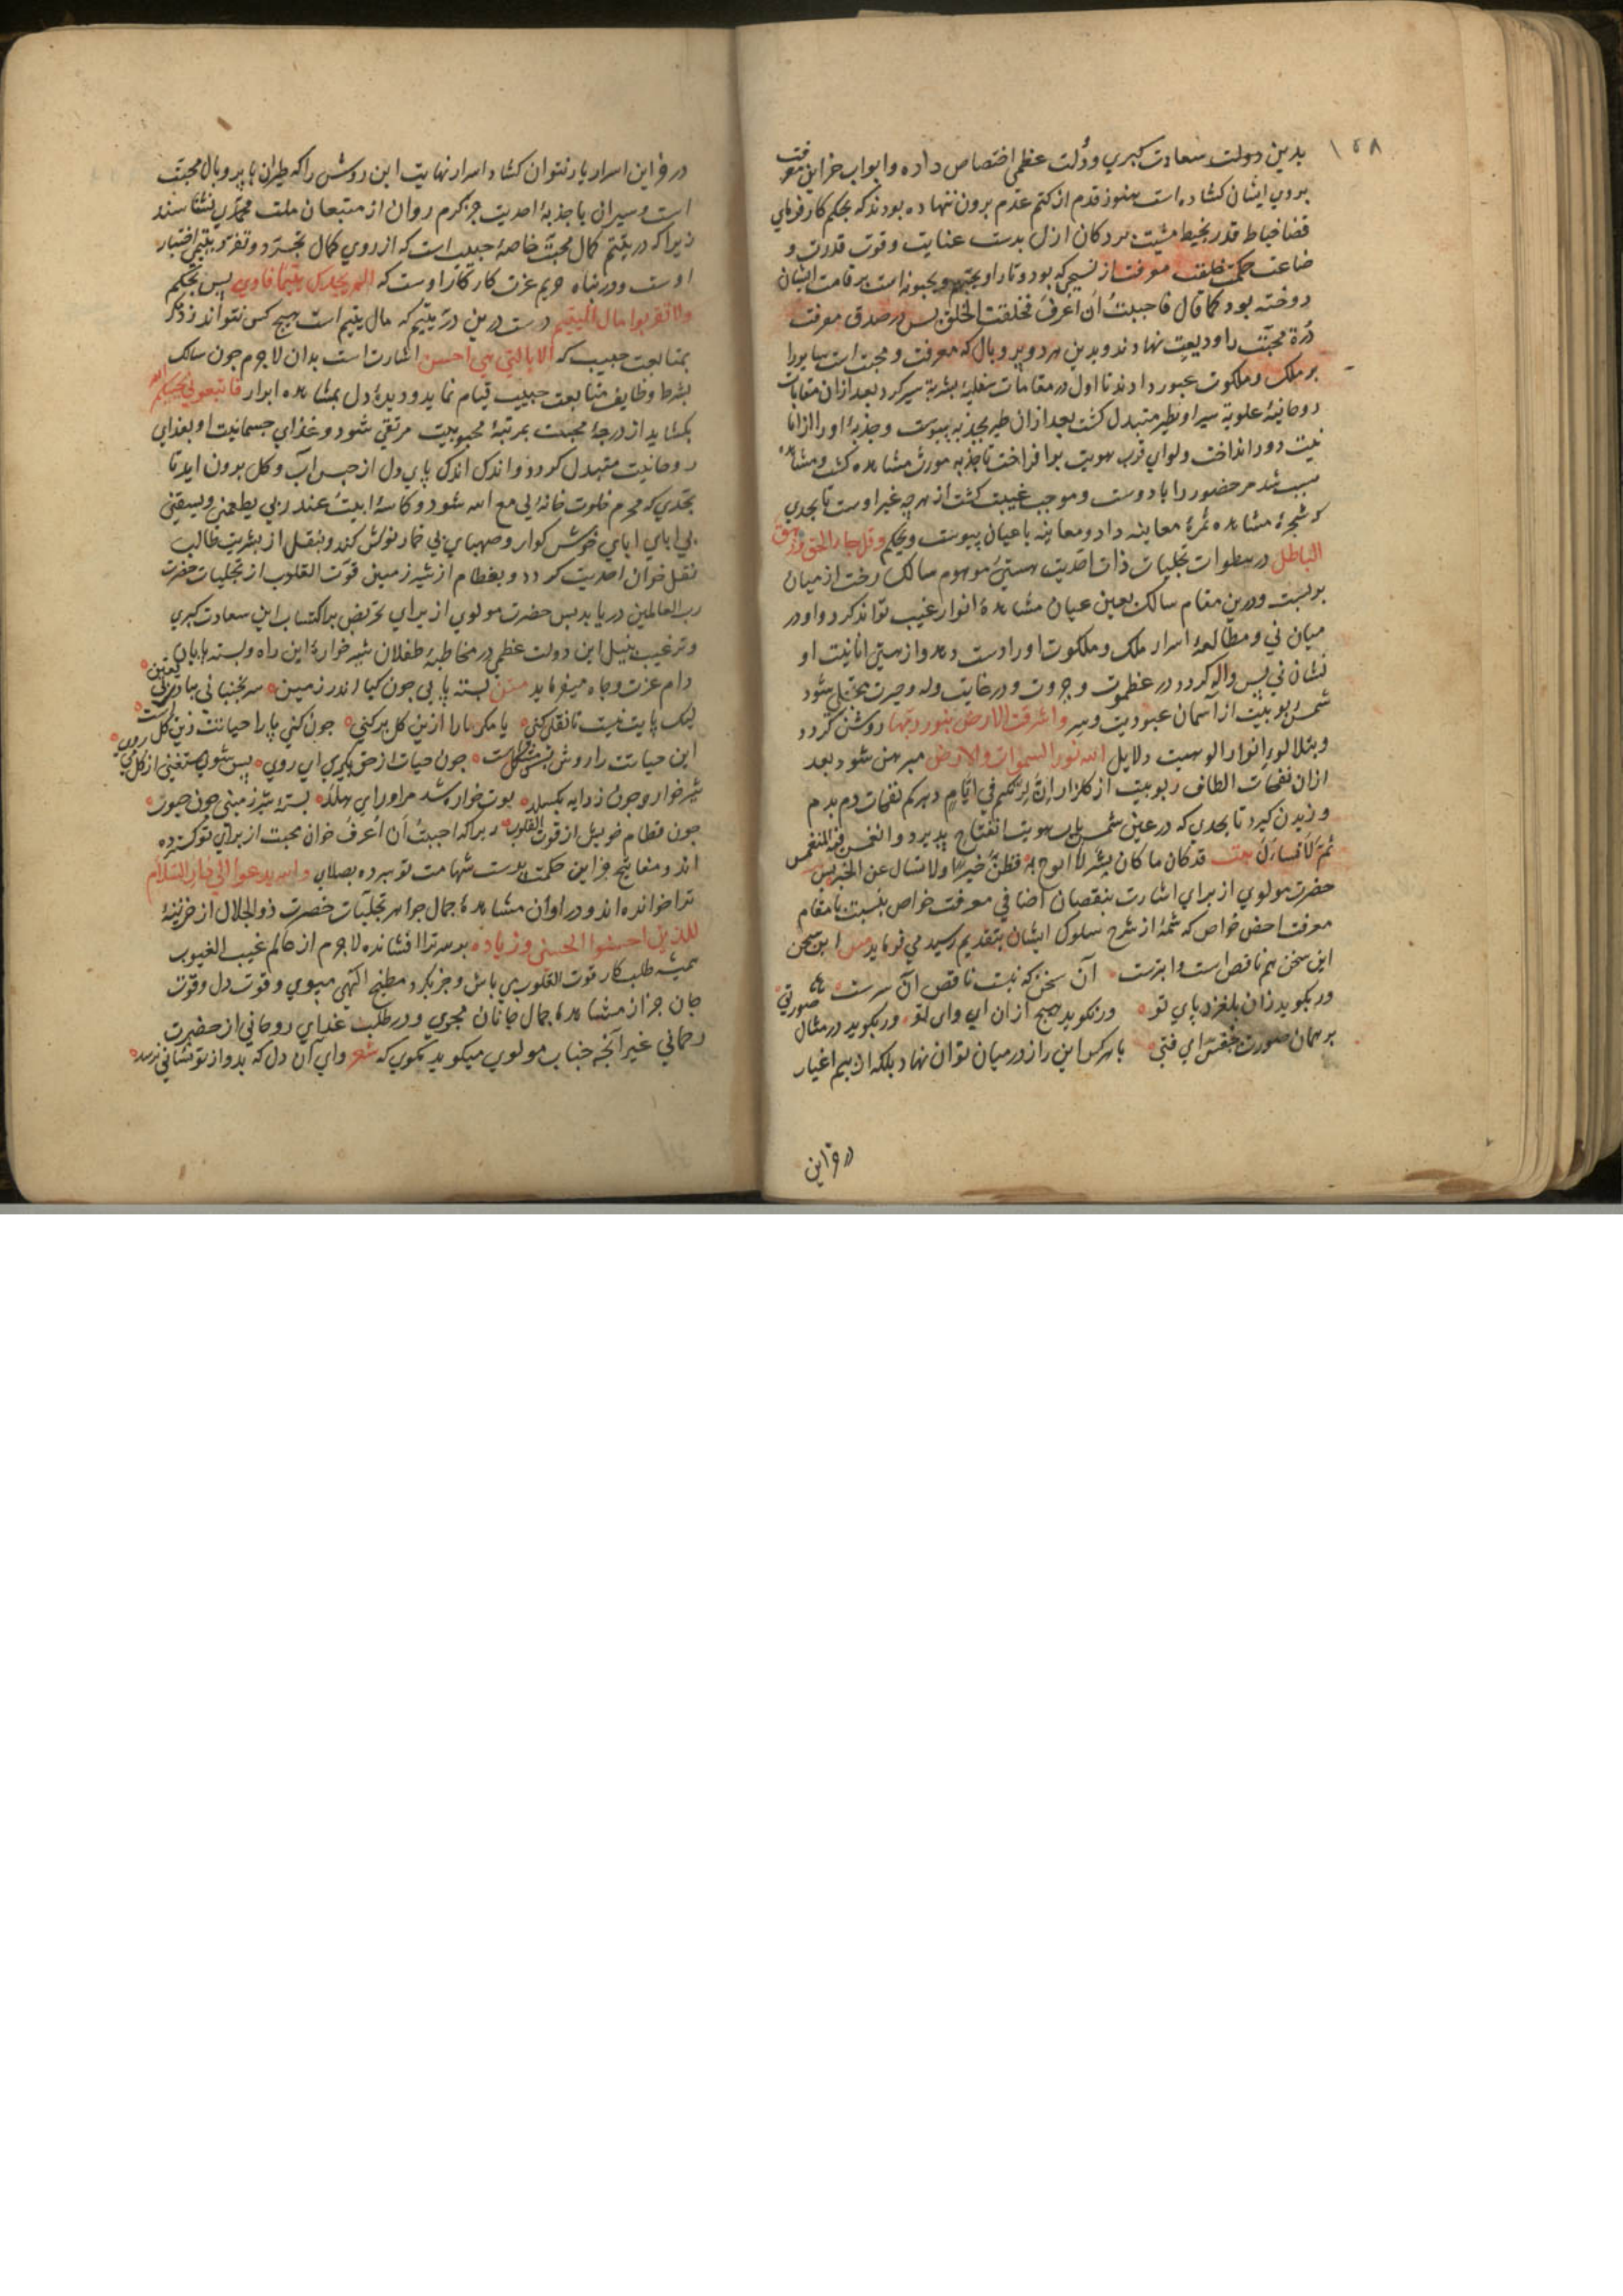 ۱۵۸
بدین دولت سعادت کبری ودُلت عظمی اختصاص داده وابواب خزاین معرفت
بروی ایشان کشاده است هنوز قدم از کتم عدم برون ننهاده بودند که بحکم کارفرمای
قضا خیاط قدر بخیط مشیت بر دکان ازل بدست عنایت وقوت قدرت و
حکمت خلعت معرفت از نسیجی که بود وتار او یحبهم ویحبونه است بر قامت ایشان
دوخته بود کما قال فاحببتُ اَن اُعرفَ فخلقت الخلق پس در صدف معرفت
دُرهٔ محبّت را ودیعت نهادند وبدین هر دو پر وبال که معرفت ومحبت است
بر ملک وملکوت عبور دادند تا اول در مقامات سفلیهٔ بشریه سیر کرد بعد ازان مقامات
روحانیهٔ علویه سیر او بطیر متبدل کشت بعد ازان طیر بجذبه پیوست وجذبه اورا از انا
نیت دور انداخت ولوای قرب هویت بر افراخت تا جذبه مورث مشاهده کشت ومشاهده
سبب شد مر حضور را با دوست وموجب غیبت کشت از هر چه غیر اوست تا بحدی
که شجرهٔ مشاهده ثمرهٔ معاینه داد ومعاینه با عیان پیوست وبحکم وقل جاء الحق وزهق
الباطل در سطوات تجلیات ذات احدیت هستیٔ موهوم سالک رخت از میان
بر بست ودرین مقام سالک بعین عیان مشاهدهٔ انوار غیب تواند کرد واو در
میان نی ومطالعهٔ اسرار ملک وملکوت اورا دست دهد واز هستی انانیت او
نشان نی پس واله کردد در عظموت وجبروت ودر غایت وله وحیرت متجلی شود
شمس ربوبیت از آسمان عبودیت وسِر واشرقت الارض بنور ربها روشن کردد
وبتلالوء انوار الوهیت دلایل الله نور السموات والارض مبرهن شود بعد
ازان نفحات الطاف ربوبیت از کلزار اِنَّ لِربّکم فی اَیّامِ دهرکم نفحات دم بدم
وزیدن کیرد تا بحدی که در عین شمس هویت انفتاح پذیرد وانغمس فیه المنغمس
ثم لا فسارَکَ بیت قد کان ما کان سِرًّا لا ابوح به فظنَّ خیرًا ولا تسال عن الخبر پس
حضرت مولوی از برای اشارت بنقصان اضافی معرفت خواص بنسبت با مقام
معرفت اخص خواص که شمهٔ از شرح سلوک ایشان بتقدیم رسید می فرماید مثنوی این سخن
این سخن هم ناقص است وابترست آن سخن که نیست ناقص آن سرست
ور بکوید زان بلغزد پای تو ور نکوید هیچ ازان ای وای تو ور بکوید در مثال صورتی
بر همان صورت بچفسی ای فتی با هر کس این راز در میان توان نهاد بلکه از بیم اغیار
در خزاین
در خزاین اسرار باز نتوان کشاد اسرار نهایت این روش را که طیران با پر وبال محبت
است وسیران با جذبهٔ احدیت جز کرم روان از متبعان ملت محمدی نشناسند
زیرا که در یتیم کمال محبّت خاصهٔ حبیب است که از روی کمال تجرّد وتفرّد یتیمی اختیار
اوست ودر پناه حریم عزت کار کار اوست که الم یجدک یتیما فاوی پس بحکم
ولا تقربوا مال الیتیم دست درین درّ یتیم که مال یتیم است هیچ کس نتواند زد مکر
بمتابعت حبیب که الا بالتی هی احسن اشارت است بدان لا جرم چون سالک
بشرط وظایف متابعت حبیب قیام نماید ودیدهٔ دل بمشاهده ابرار فاتبعونی یحببکم الله
بکشاید از درجهٔ محبت بمرتبهٔ محبوبیت مرتقی شود وغذای جسمانیت او بغذای
روحانیت متبدل کردد واندک اندک پای دل از حبس آب وکل برون آید تا
بحدی که محرم خلوت خانهٔ لی مع الله شود وکاسهٔ ابیتُ عند ربی یطعمنی ویسقینی
بی اباءی ابای خوش کوار وصهبای بی خمار نوش کند وبنقل از بشریت طالب
نقل خوان احدیت کردد وبفطام از شیر زمینی قوّت القلوب از تجلیات حضرت
رب العالمین دریابد پس حضرت مولوی از برای تحریض بر اکتساب این سعادت کبری
وترغیب بنیل این دولت عظمی در مخاطبهٔ طفلان شیر خوارهٔ این راه وبسته پایان
دام عزت وجاه میفرماید مثنوی بسته پایی چون کیا اندر زمین سر بجنبانی ببادی بی یقین
لیک پایت نیست تا نقلی کنی یا مکر پا را ازین کل برکنی چون کنی پا را حیاتت زین کل است
این حیاتت را روش بس مشکل است چون حیات از حق بکیری ای روی پس شوی مستغنی از کل می روی
شیر خواره چون ز دایه بکسلد لوت خواره شد مر اورا می هلد بستهٔ شیر زمینی چون حبوب
جون فطام خویش از قوت القلوب زیراکه احببتُ اَن اُعرفَ خوان محبت از برای تو کسترده
اند ومفاتیح خزاین حکمت بدست شهامت تو سپرده بصلای والله یدعوا الی دار السّلام
ترا خوانده اند ودر اوان مشاهدهٔ جمال جواهر تجلیّات حضرت ذو الجلال از خزینهٔ
للذین احسنوا الحسنی وزیاده بر سر ترا افشانده لا جرم از عالم غیب الغیوب
همیشه طلبکار قوت القلوب می باش وجز بکرد مطبخ الهی مپوی وقوت دل وقوّت
جان جز از مشاهدهٔ جمال جانان مجوی ودر طلب غذای روحانی از حضرت
رحمانی غیر آنچه جناب مولوی میکوید مکوی که شعر وای آن دل که بدو از تو نشانی نرسد